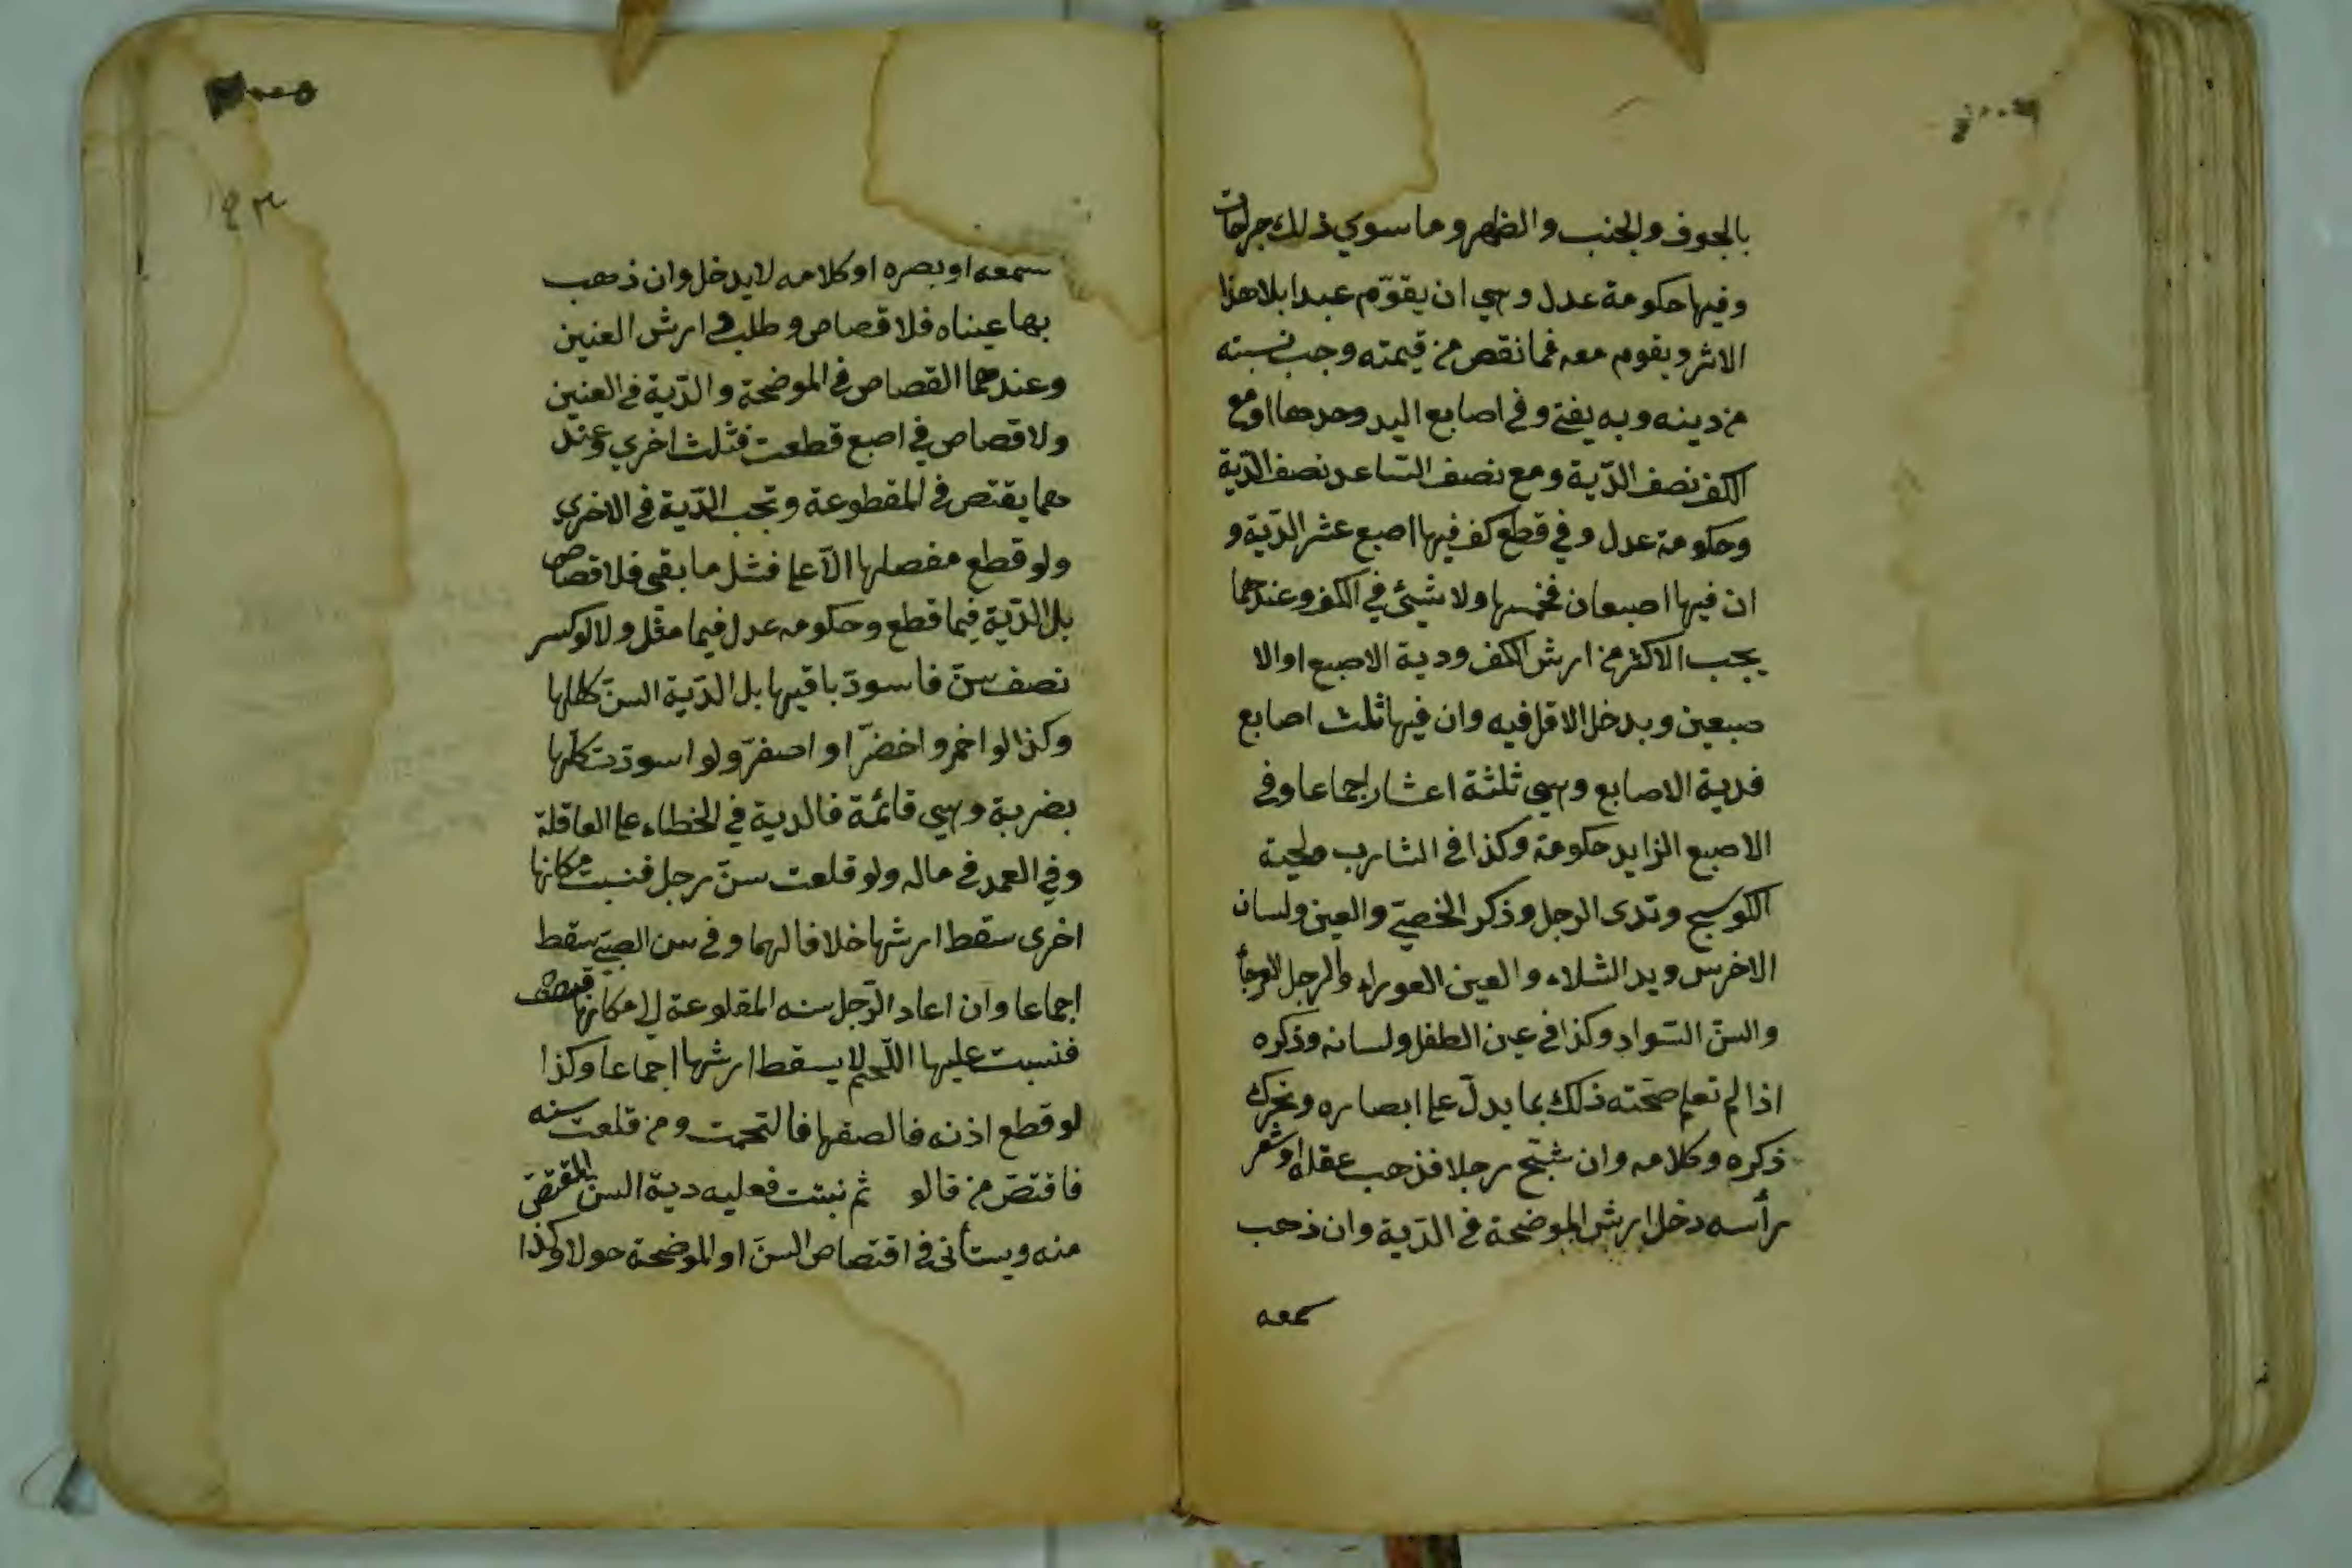 بالجوف والجنب والظهر وما سوي ذلك جراحات
وفيها حكومة عدل وهي ان يقوّم عبدا بلا هذا
الاثر ويقوم معه فما نقص من قيمته وجب نسبته
من دينه وبه يفتى وفي اصابع اليد وحدها او مع
الكف نصف الدّية ومع نصف السّاعد نصف الدّية
وحكومة عدل وفي قطع كف فيها اصبع عشر الدّية و
ان فيها اصبعان فخمسها ولا شيئ في الكف وعندهما
يجب الاكثر من ارش الكف ودية الاصبع او الا
صبعين ويدخل الاقل فيه وان فيها ثلث اصابع
فدية الاصابع وهي ثلثة اعشار اجماعا وفي
الاصبع الزايد حكومة وكذا في الشارب ولحية
الكوسج وثدى الرجل وذكر الخصي والعين ولسان
الاخرس ويد الشلاء والعين العوراء والرجل العرجأ
والسنّ السّواد وكذا في عين الطفل ولسانه وذكره
اذا لم تعلم صحّته ذلك بما يدلّ على ابصاره وتحرك
ذكره وكلامه وان شجّ رجلا فذهب عقله او شعر
رأسه دخل ارش الموضحة في الدّية وان ذهب
سمعه
سمعه او بصره او كلامه لا يدخل وان ذهب
بها عيناه فلا قصاص و ارش العنين
وعندهما القصاص في الموضحة والدّية في العنين
ولا قصاص في اصبع قطعت فشلت اخري وعند
هما يقتص في المقطوعة وتجب الدّية في الاخري
ولو قطع مفصلها الاّعلى فشل ما بقى فلا قصاص
بل الدّية فيما قطع وحكومه عدل فيما ولا لو كسر
نصف سنّ فاسودّ باقيها بل الدّية السنّ كلها
وكذا لو احمر واخضرّ او اصفرّ ولو اسودّت كلها
بضربة وهي قائمة فالدية في الخطاء على العاقلة
وفي العمد في ماله ولو قلعت سنّ رجل فنبت مكانها
اخرى سقط ارشها خلافا لهما وفي سن الصبّي سقط
اجماعا وان اعاد الرّجل سنه المقلوعة الى مكانها
فنبت عليها اللّحم لا يسقط ارشها اجماعا وكذا
لو قطع اذنه فالصقها فالتحمت ومن قلعت سنه
فاقتصّ من قالو ثم نبتت فعليه دية السنّ المقتصّ
منه ويستأنى في اقتصاص السنّ او الموضحة حولا وكذا